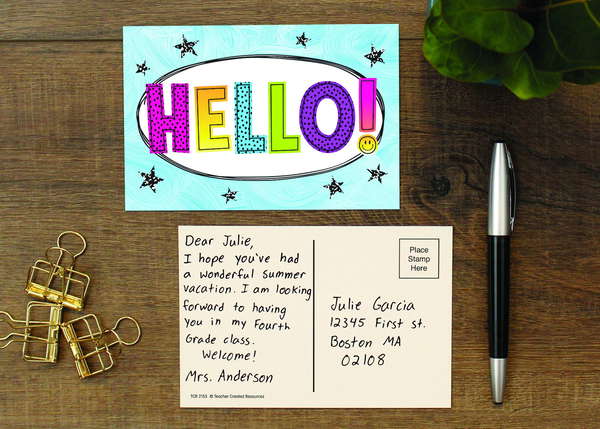 HELLO!
Dear Julie,
I hope you've had
a wonderful summer
vacation. I am looking
forward to having
you in my Fourth
Grade class.
Welcome!
Mrs. Anderson
TCR 2155 © Teacher Created Resources
Place
Stamp
Here
Julie Garcia
12345 First st.
Boston MA
02108